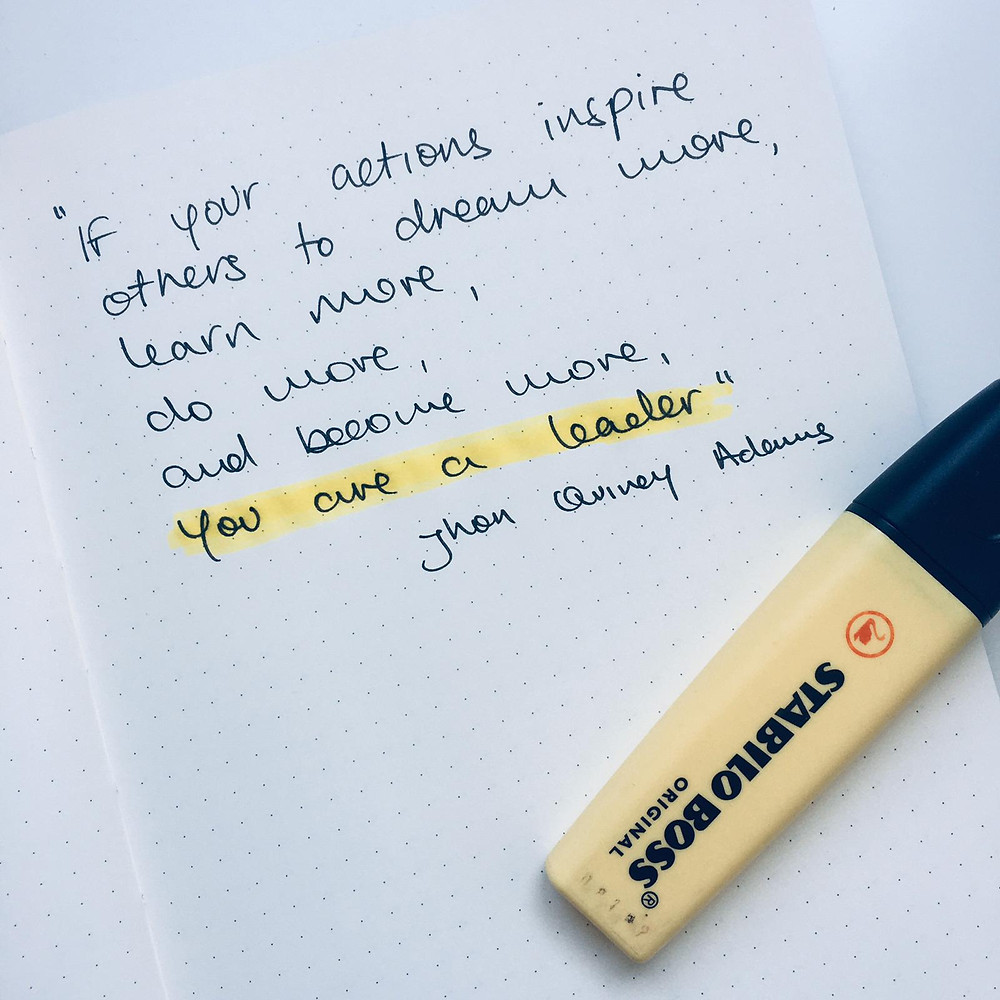 "If your actions inspire
others to dream more,
learn more,
do more,
and become more,
you are a leader"
Jhon Quincy Adams
STABILO BOSS®
ORIGINAL